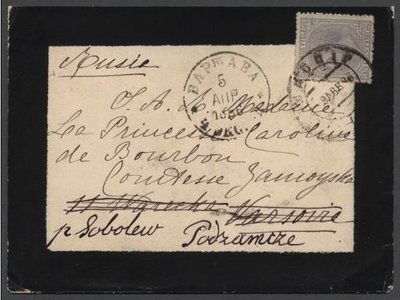 Rusie
ВАРШАВА
5
АПР
S. A. R. Madame
La Princesse Caroline
de Bourbon
Comtesse Zamoyska
Varsovie
p Sobolew Podzamcze